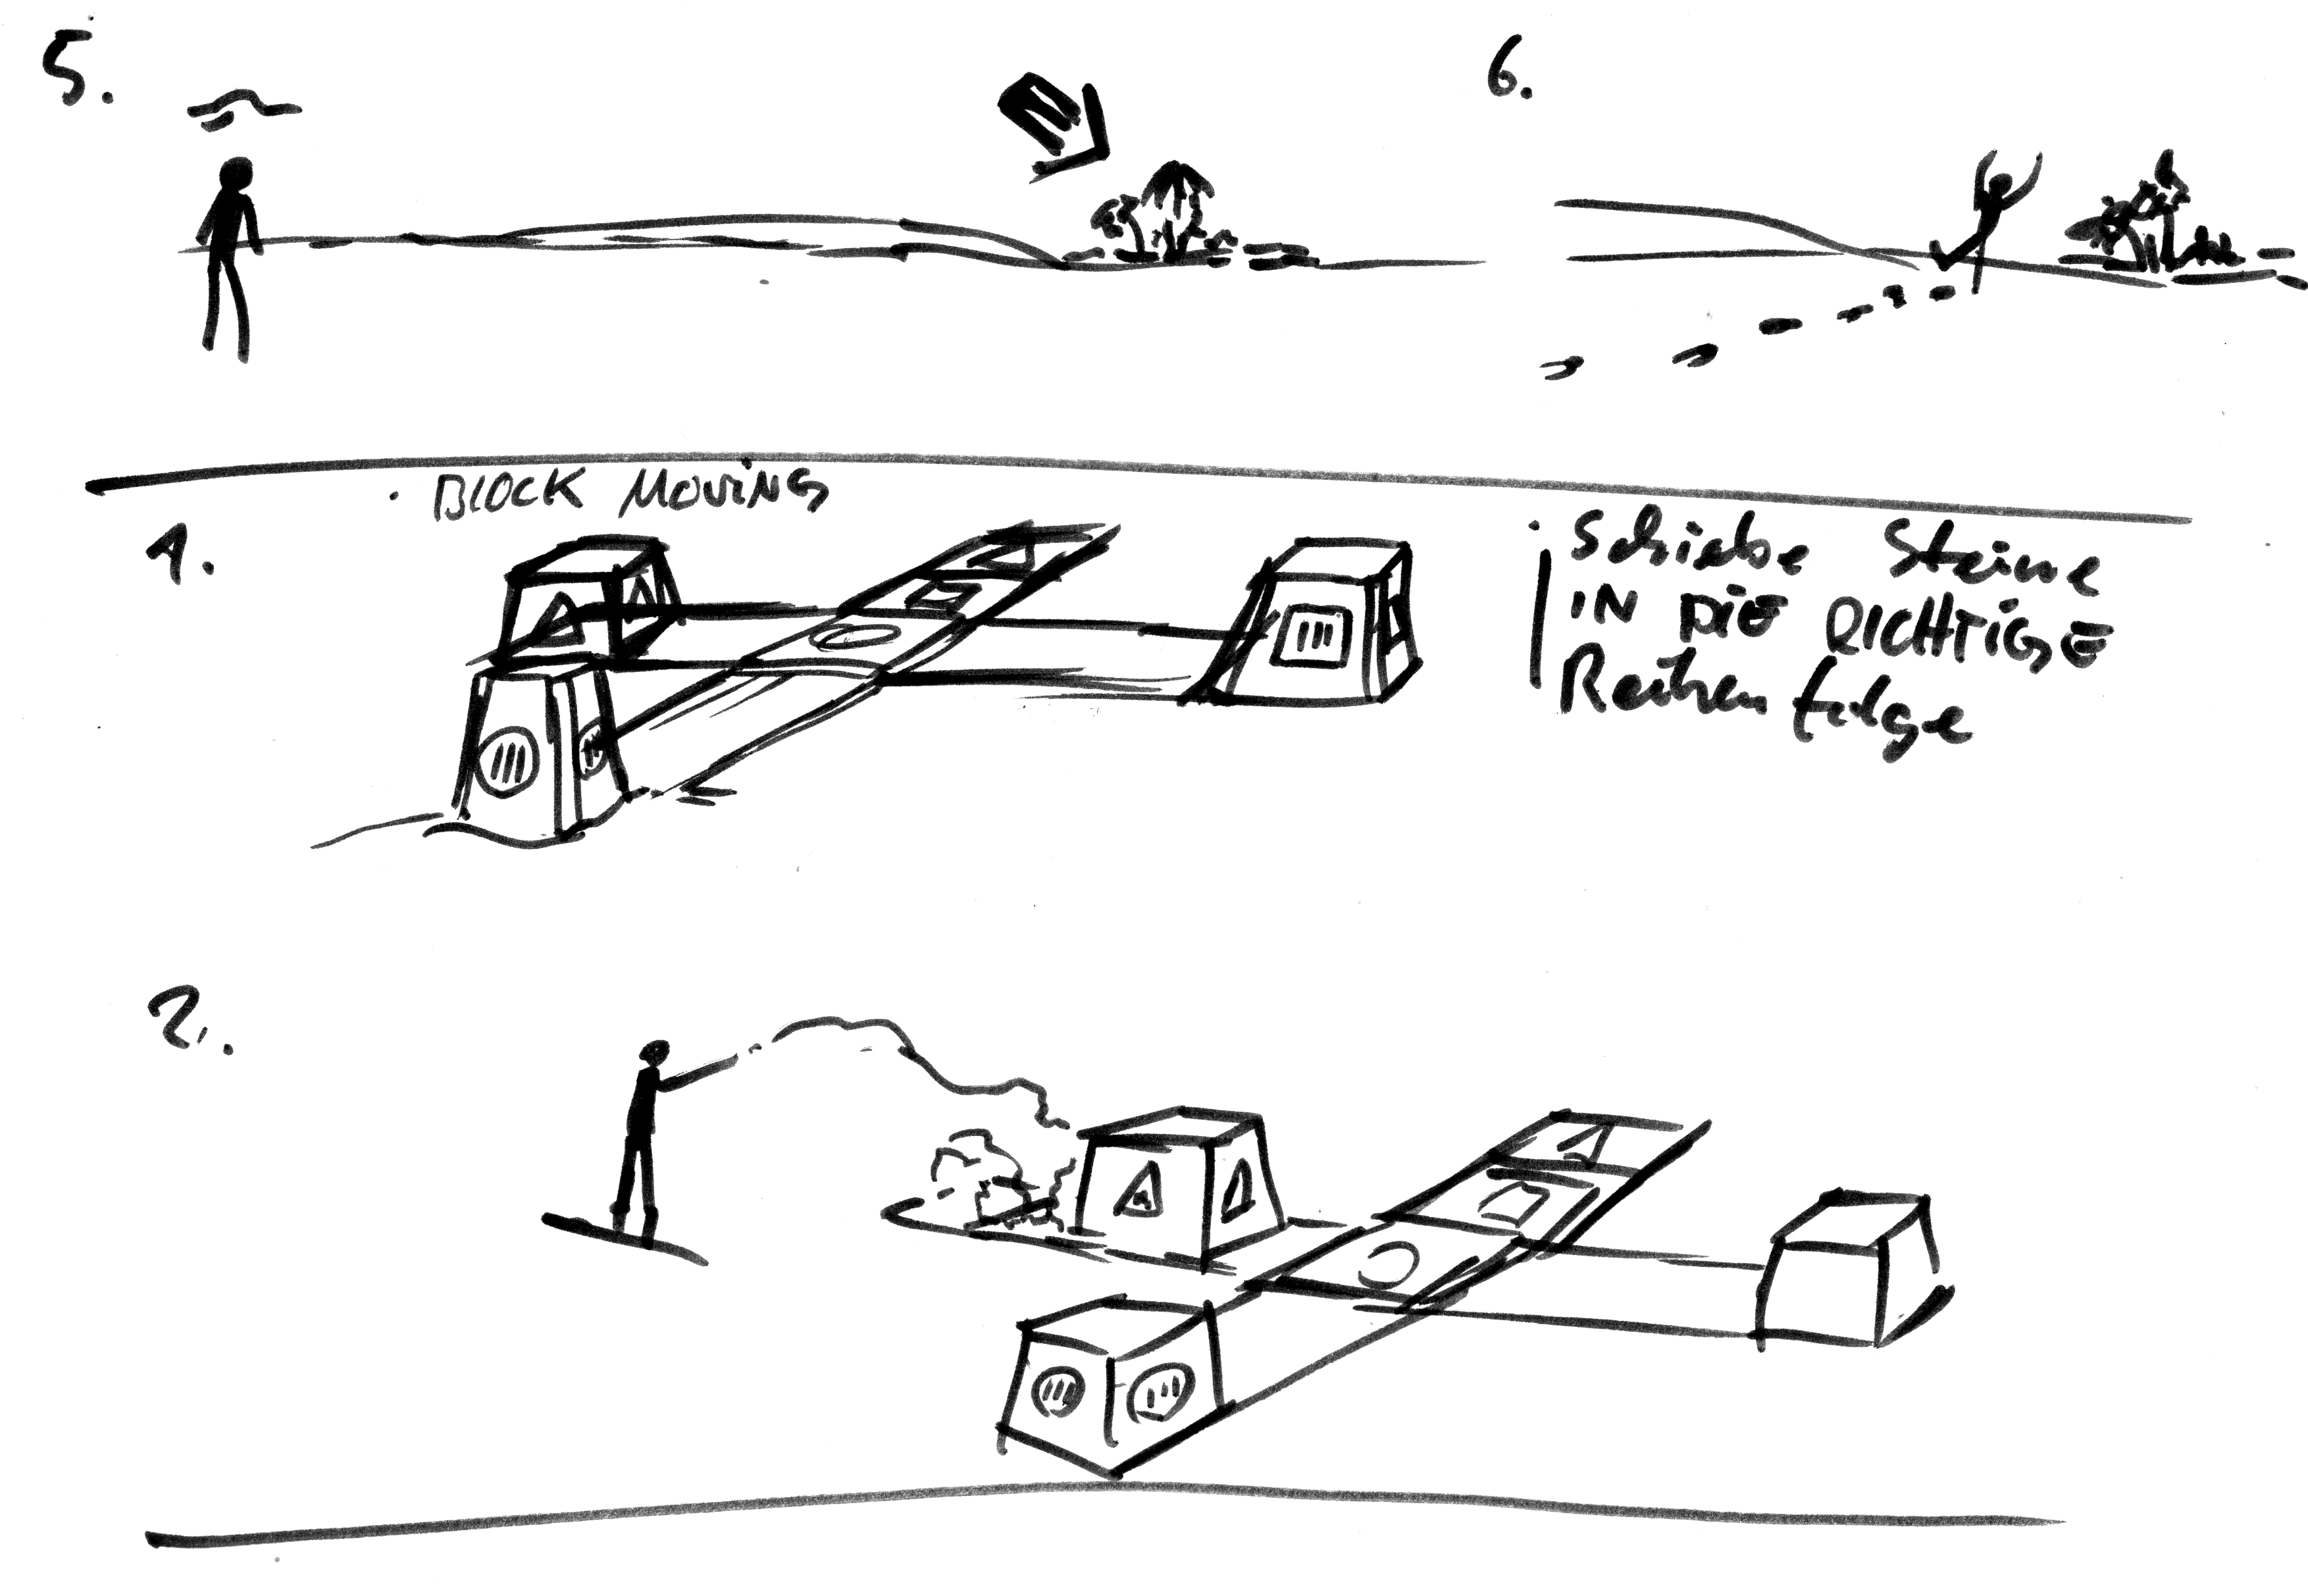 5.
6.
· BLOCK MOViNG
1.
· Schiebe Steine
iN DiE RiCHTiGE
Reihenfolge
2.